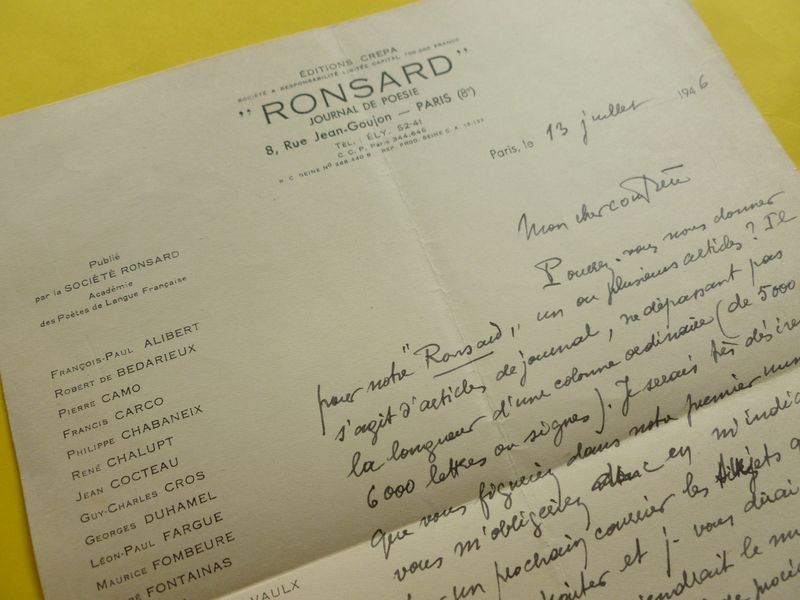 ÉDITIONS CREPA
SOCIÉTÉ A RESPONSABILITÉ LIMITÉE CAPITAL 100.000 FRANCS
"RONSARD"
JOURNAL DE POESIE
8, Rue Jean-Goujon — PARIS (8e)
TÉL. : ÉLY. 52-41
C. C. P. Paris 344.646
R. C. SEINE No 268.440 B REP. PROD. SEINE C. A.
Paris, le 13 juillet 1946
Publié
par la SOCIÉTÉ RONSARD
Académie
des Poètes de Langue Française
FRANÇOIS-PAUL ALIBERT
ROBERT DE BEDARIEUX
PIERRE CAMO
FRANCIS CARCO
PHILIPPE CHABANEIX
RENÉ CHALUPT
JEAN COCTEAU
GUY-CHARLES CROS
GEORGES DUHAMEL
LÉON-PAUL FARGUE
MAURICE FOMBEURE
FONTAINAS
VAULX
Mon cher confrère
Pouvez-vous nous donner
pour notre "Ronsard" un ou plusieurs articles? Il
s'agit d'articles de journal, ne dépassant pas
la longueur d'une colonne ordinaire (de 5000
6000 lettres ou signes). Je serais très désire
que vous figuriez dans notre premier num
vous m'obligeriez en m'indi
un prochain courrier les sujets q
et je vous dirai
le
de